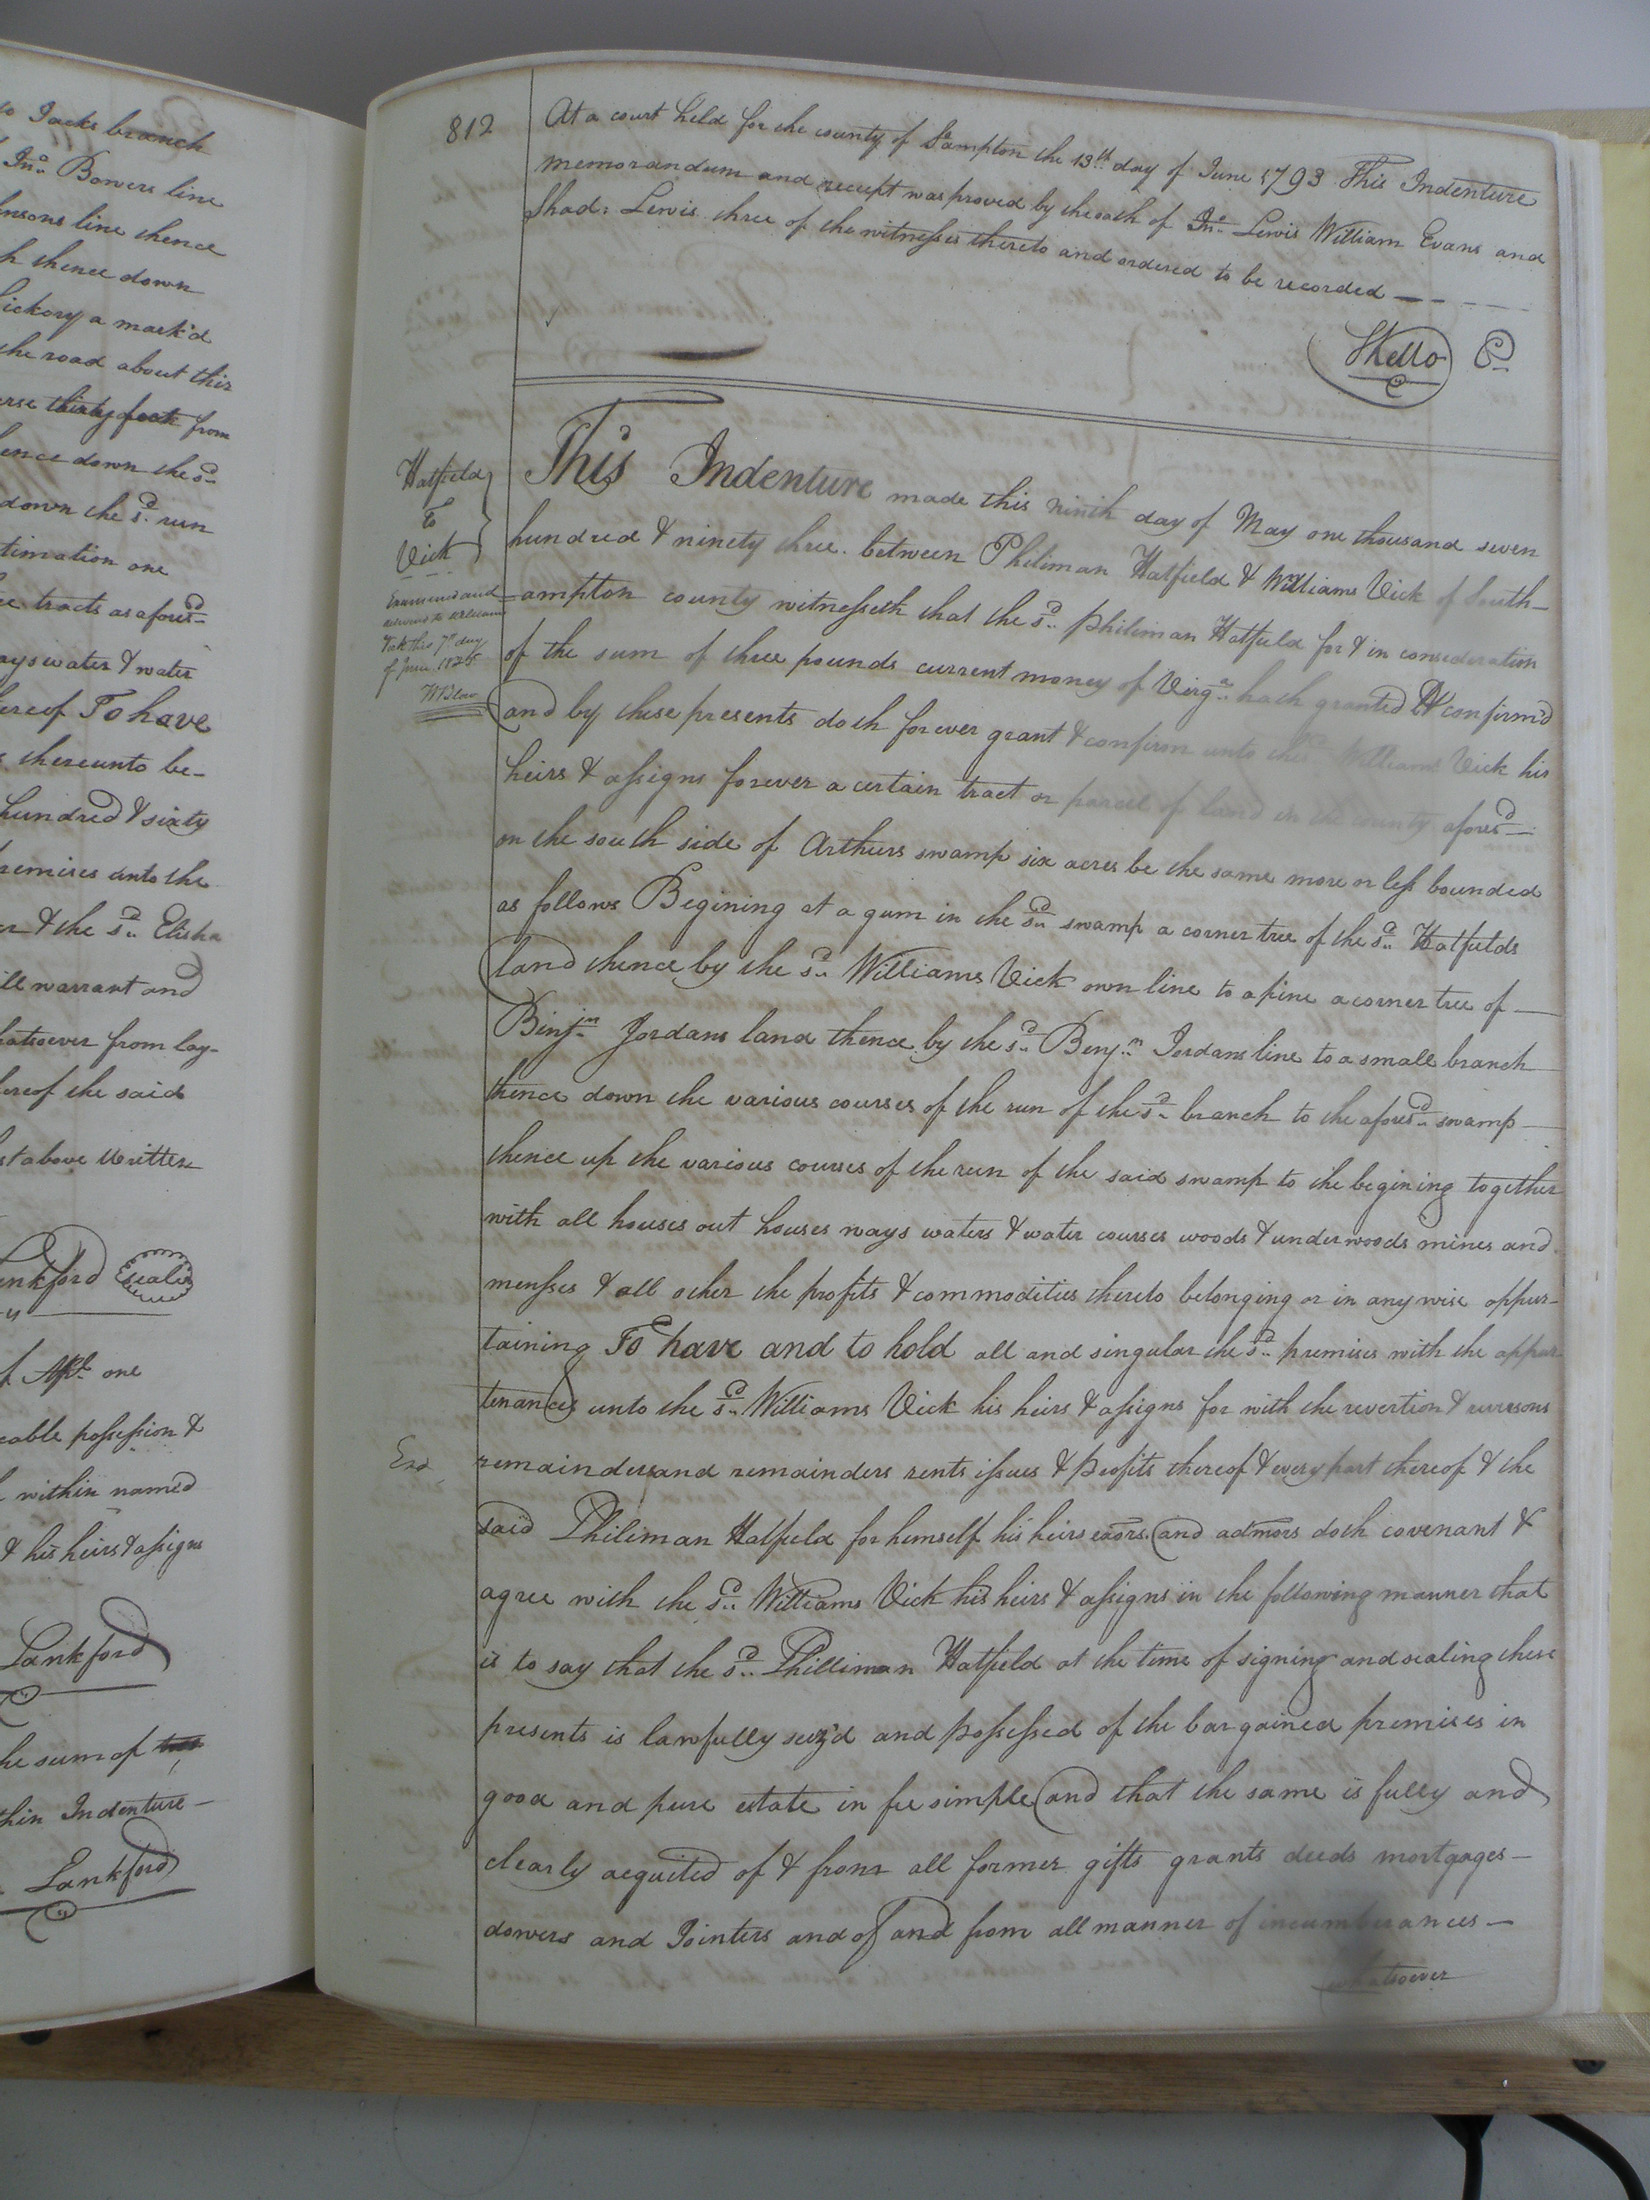 to Jacks branch
Jno. Bowers line
line thence
thence down
hickory a mark'd
the road about this
thirty feet from
down the sd.
down the sd. run
one
tracts as afoResd.
water & water
hereof To have
thereunto be-
hundred & sixty
premises unto the
& the sd. Elisha
warrant and
from lay-
hereof the said
above written
seal
of Apl. one
possession &
within named
& his heirs & assigns
Lankford
the sum of
Indenture—
Lankford
812
At a court held for the county of Sampton the 13th. day of June 1793 This Indenture
memorandum and receipt was proved by the oath of Jno. Lewis William Evans and
Shad: Lewis three of the witnesses thereto and ordered to be recorded —
SKello C
Hatfield
To
Vick
Examined and
Vick this 7th day
of June 1825
This Indenture made this ninth day of May one thousand seven
hundred & ninety three. between Philiman Hatfield & Williams Vick of South-
ampton county witnesseth that the sd. Philiman Hatfield for & in consideration
of the sum of three pounds current money of Virga. hath granted & confirm'd
and by these presents doth forever grant & confirm unto the Williams Vick his
heirs & assigns forever a certain tract or parcel of land in the county aforesd.
on the south side of Arthurs swamp six acres be the same more or less bounded
as follows Begining at a gum in the sd. swamp a corner tree of the sd. Hatfields
land thence by the sd. Williams Vick own line to a pine a corner tree of —
Binjn. Jordans land thence by the sd. Benjn. Jordans line to a small branch
thence down the various courses of the run of the sd. branch to the aforesd. swamp —
thence up the various courses of the run of the said swamp to the begining together
with all houses out houses ways waters & water courses woods & underwoods mines and
mensses & all other the profits & commodities thereto belonging or in any wise appur-
taining To have and to hold all and singular the sd. premises with the appur
tenances unto the sd. Williams Vick his heirs & assigns for with the revertion &
remainders and remainders rents issues & profits thereof & every part thereof & the
said Philiman Hatfield for himself his heirs exors. and admors doth covenant &
agree with the sd. Williams Vick his heirs & assigns in the following manner that
is to say that the sd. Philliman Hatfield at the time of signing and sealing these
presents is lawfully seiz'd and possessed of the bargained premises in
good and pure estate in fee simple and that the same is fully and
clearly acquited of & from all former gifts grants deeds mortgages —
dowers and Jointers and of and from all manner of incumberances —
whatsoever